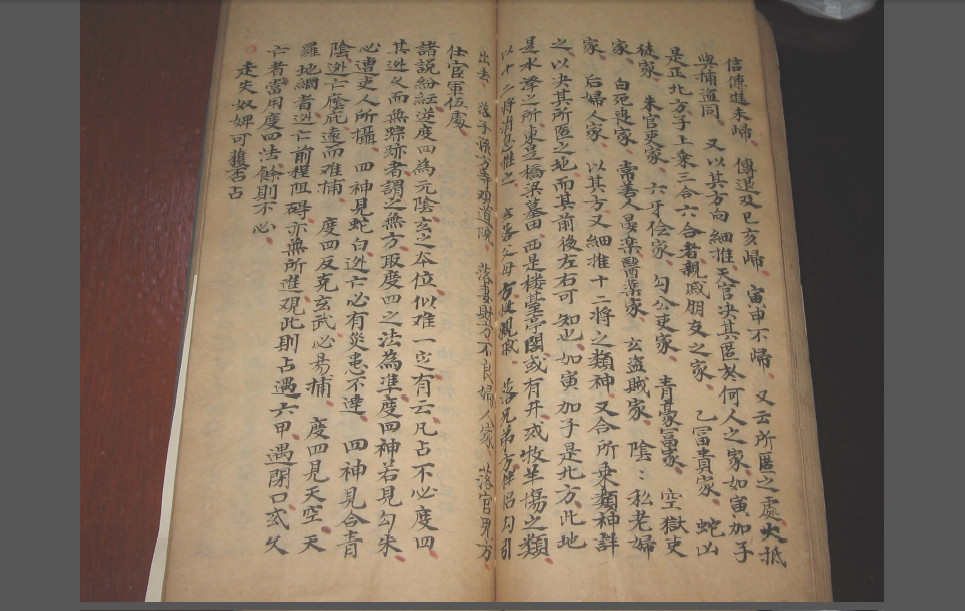 信傳進未歸 傳退及巳亥歸 寅申不歸 又云所匿之處大抵
與捕盗同 又以其方向細推天官决其匿於何人之家如寅加子
是正北方子上乘三合六合者親戚朋友之家 乙冨貴家 蛇凶
徒家 朱官吏家 六牙侩家 勾公吏家 青豪冨家 空獄吏
家 白死喪家 常善人㫷楽醫藥家 玄盗贼家 陰：私老婦
家 后婦人家 以其方又細推十二将之類神又合所乘類神詳
之以决其所匿之地而其前後左右可知也如寅加子是北方此地
是水澤之所東是橋梁墓田西是楼臺亭閣或有开或牧羊塲之類
以十二将消息推之 占落父母方投親戚 落兄弟方伴侣勾引
出去 落子孫方寺观道院 落妻財方不良婦人家 落官男方
仕宦軍伍處
諸説紛紜逆度四為元陰玄之夲位似难一定有云凡占不必度四
其逃又而無踪跡者謂之無方取度四之法為準度四神若見勾朱
必遭吏人所攝 四神見蛇白逃亡必有災恙不達 四神見合青
陰逃亡蔭庇遠而难捕 度四反克玄武必易捕 度四見天空天
羅地綱者逃亡前程阻碍亦無所進观此則占遇六甲遇閉口或久
亡者當用度四法餘則不必
走失奴婢可獲否占